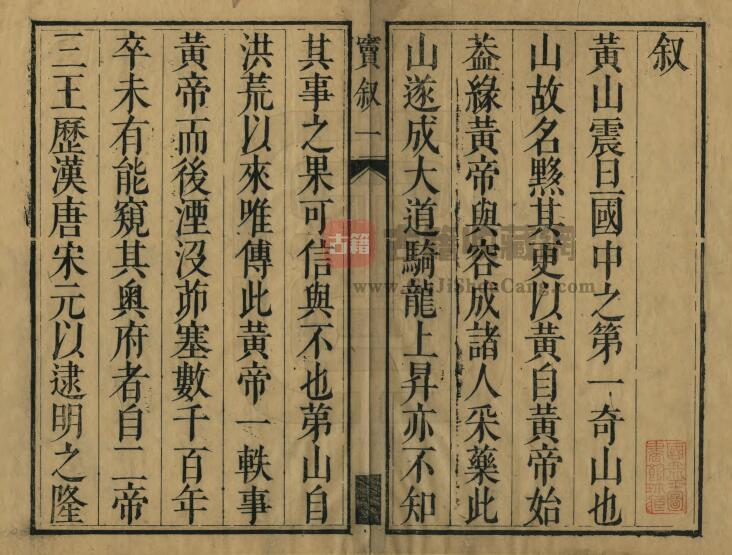 叙
黃山震旦國中之第一奇山也
山故名黟其更以黃自黃帝始
葢緣黃帝與容成諸人采藥此
山遂成大道騎龍上昇亦不知
竇叙一
其事之果可信與不也第山自
洪荒以來唯傳此黃帝一軼事
黃帝而後湮没茆塞數千百年
卒未有能窺其奧府者自二帝
三王歷漢唐宋元以逮明之隆
古籍